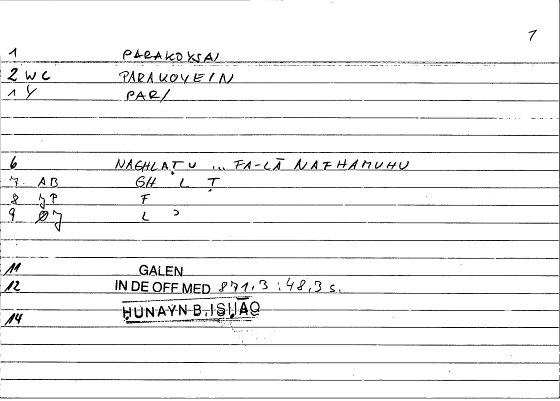 1
1 PARAKOYSAI
2 WC PARAKOYEIN
1 Y PAR/
6 NAGHLAṬU ... FA-LĀ NAFHAMUHU
7. AB GH L Ṭ
8 JP F
9 ØJ L ʾ
11 GALEN
12 IN DE OFF MED 871,3 : 48,3 s.
14 ḤUNAYN B. ISḤĀQ